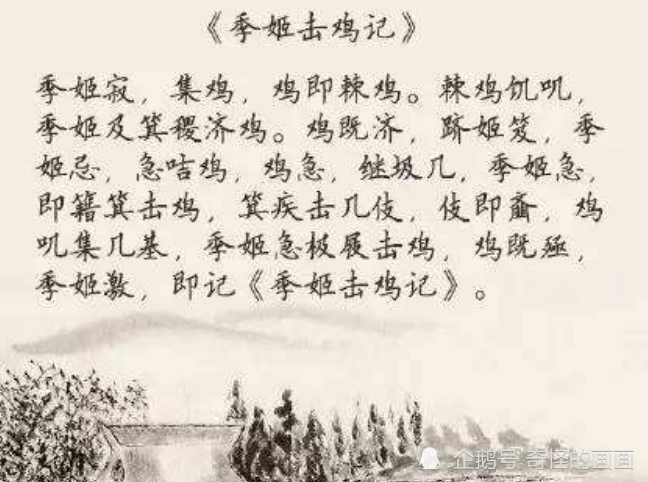 《季姬击鸡记》
季姬寂，集鸡，鸡即棘鸡。棘鸡饥叽，
季姬及箕稷济鸡。鸡既济，跻姬笈，季
姬忌，急咭鸡，鸡急，继圾几，季姬急，
即籍箕击鸡，箕疾击几伎，伎即齑，鸡
叽集几基，季姬急极屐击鸡，鸡既殛，
季姬激，即记《季姬击鸡记》。
企鹅号 奇怪的画画